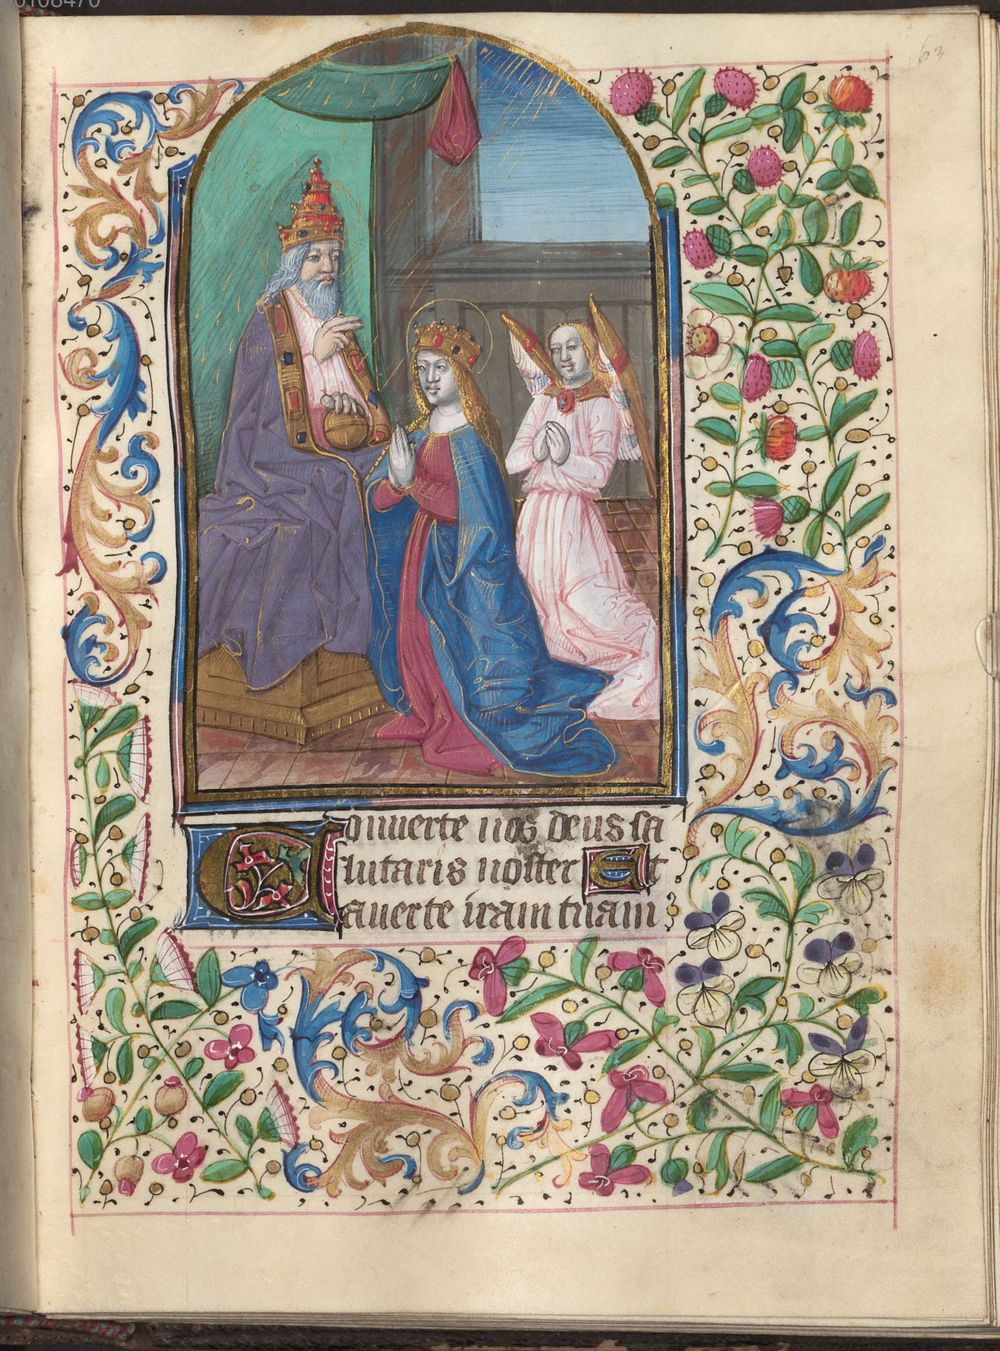 0108470
63
Conuerte nos deus sa
lutaris noster Et
auerte iram tuam